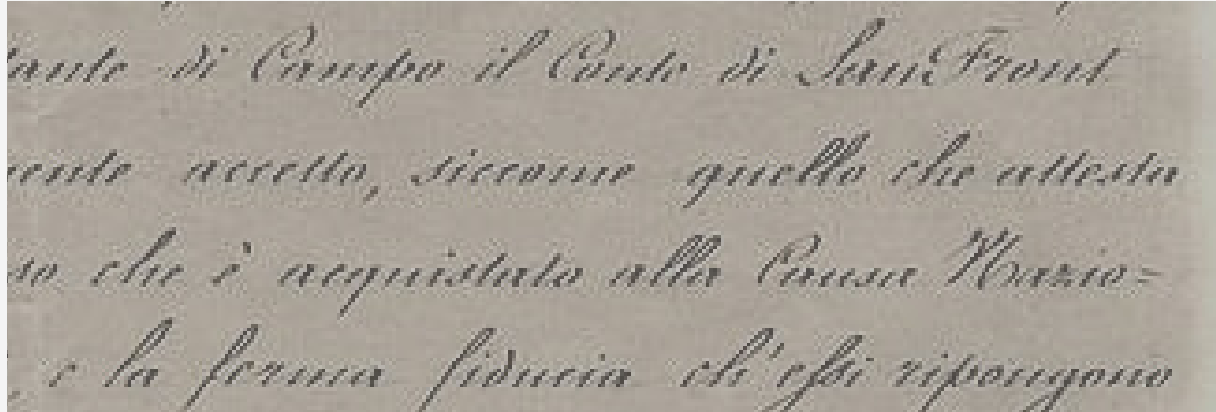 tante di Campo il Conte di San Front
mente accetto, siccome quello che attesta
so che è acquistato alla Causa Nazio=
, e la ferma fiducia ch'essi ripongono